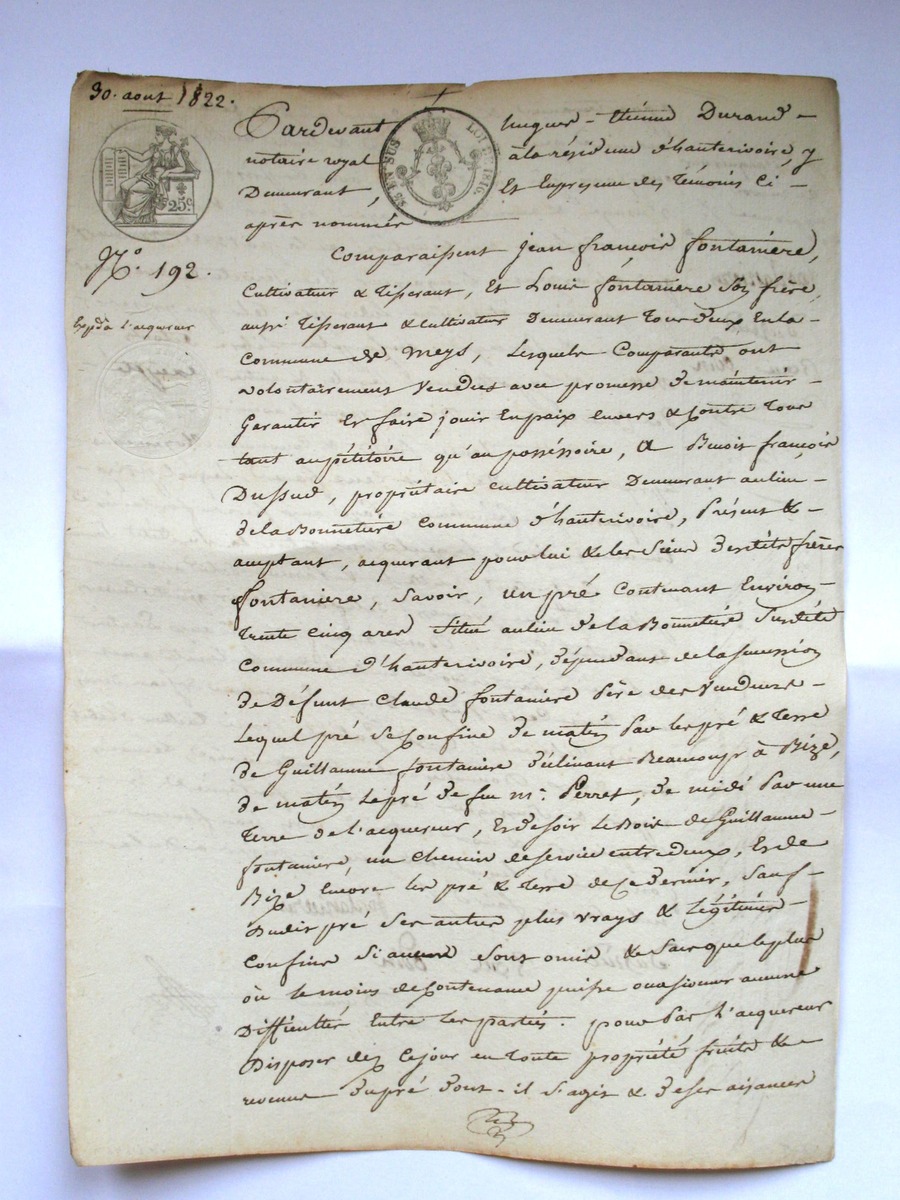 30. aout 1822.
25c
25 EN SUS LOI DE 1816.
Pardevant hugues - étienne Durand -
notaire royal à la résidence d'hauterivoire, y
Demeurant, Et En présence des Témoins Ci -
après nommés
N.o 192.
Comparaissent jean françois fontaniere,
Cultivateur & Tisserant, Et Louis fontaniere son frère,
Expd à l'acquereur
aussi Tisserant & Cultivateur Demeurant Tous deux En la
Commune de Meys, Lesquels Comparants ont
volontairement Vendus avec promesse de maintenir
Garantir Et faire jouir En paix envers & Contre Tous
tant au pétitoire qu'au posséssoire, a Benoit françois
Dussud, propriétaire cultivateur Demeurant au lieu
de la Bonnetière Commune d'hauterivoire, Présent &
acceptant, acquerant pour lui & les Siens desdits frères
fontaniere, Savoir, un pré Contenant Environ
Trente Cinq ares Situé au lieu de la Bonnetière Susdite
Commune d'hauterivoire, dépendant de la succession
de Défunt Claude fontaniere Père des Vendeurs
Lequel pré Se Confine de matin Par les pré & Terre
de Guillaume fontaniere déclinant à Bize,
de matin Le pré de feu mr. Perret, de midi Par une
Terre de l'acquereur, Et de Soir Le Bois de Guillaume
fontaniere, un Chemin de Service entredeux, Et de
Bize Encore les pré & Terre de Ce dernier, Sauf
dudit pré Ses autres plus vrays & Légitimes
Confins Si aucuns Sont omis & Sans que le plus
où le moins de Contenance puisse occasioner aucune
Difficultés Entre les parties. pour Par L'acquereur
Disposer dez ce jour en Toute propriété fruits &
revenus du pré dont - il S'agit & de Ses aisances